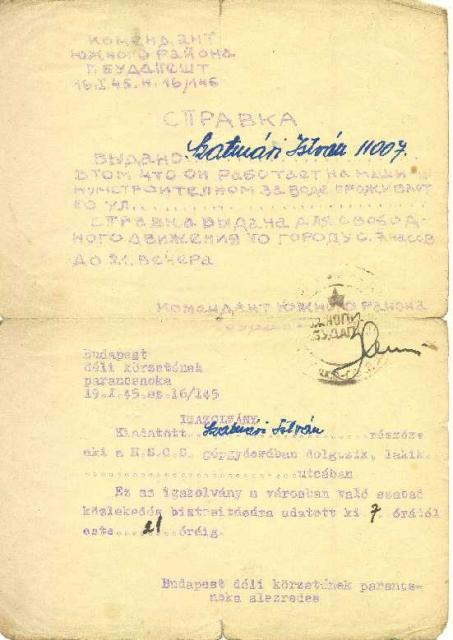 КОМЕНДАНТ
ЮЖНОГО РАЙОНА
Г. БУДАПЕШТ
16.I.45. Н. 16/145
СПРАВКА
ВЫДАНО Szatmári István 11007.
В ТОМ ЧТО ОН РАБОТАЕТ НА МАШИ
НОМСТРОИТЕЛНОМ ЗАВОДЕ ПРОЖИВАЕТ
ПО УЛ
СПРАВКА ВЫДАНА ДЛЯ СВОБОД
НОГО ДВИЖЕНИЯ ПО ГОРОДУ С. 7 ЧАСОВ
ДО 21. ВЕЧЕРА
КОМЕНДАНТ ЮЖНОГО РАЙОНА
Budapest
déli körzetének
parancsnoka
19.I.45.es.16/145
IGAZOLVÁNY
Kiadatott Szatmári István részére
aki a H.S.C.S. gépgyárában dolgozik, lakik
utcában
Ez az igazolvány a városban való szabad
közlekedés biztositására adatott ki 7 órától
este 21 óráig.
Budapest déli körzetének parancs-
noka alezredes